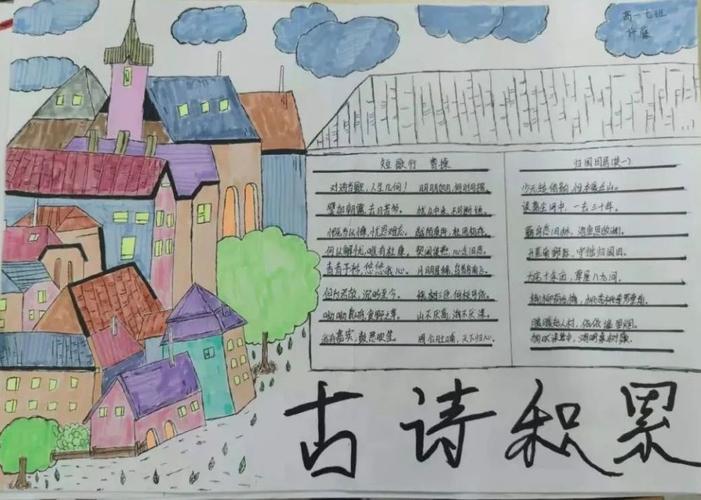 高一七班
短歌行 曹操
对酒当歌，人生几何！ 明明如月，何时可掇。
譬如朝露，去日苦多。 忧从中来，不可断绝。
慨当以慷，忧思难忘。 越陌度阡，枉用相存。
何以解忧，唯有杜康。 心念旧恩。
青青子衿，悠悠我心。 月明星稀，乌鹊南飞。
但为君故，沉吟至今。 绕树三匝，何枝可依。
呦呦鹿鸣，食野之苹。 山不厌高，海不厌深。
我有嘉宾，鼓瑟吹笙。 周公吐哺，天下归心。
归园田居(其一)
少无适俗韵，性本爱丘山。
误落尘网中，一去三十年。
羁鸟恋旧林，池鱼思故渊。
开荒南野际，守拙归园田。
方宅十余亩，草屋八九间。
榆柳荫后檐，桃李罗堂前。
暧暧远人村，依依墟里烟。
狗吠深巷中，鸡鸣桑树颠。
古诗积累